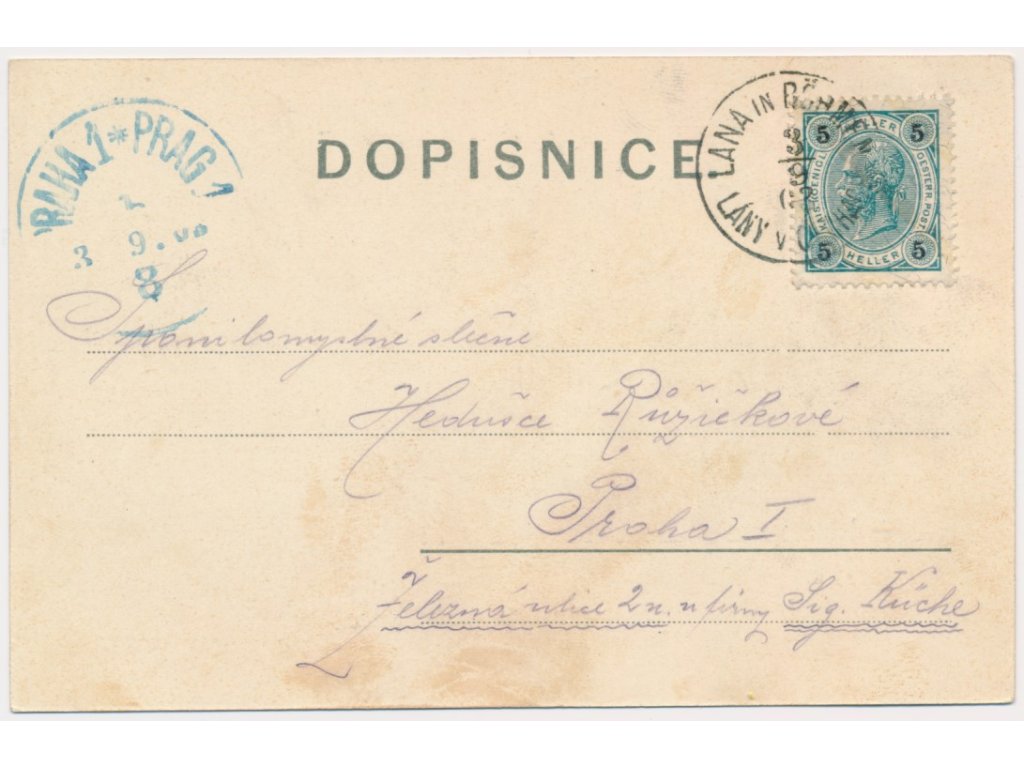 PRAHA 1 * PRAG 1
3 9. 08
8
DOPISNICE
LANA IN BÖHMEN
LÁNY V
3
8
5 HELLER 5
KAIS. KOENIGL. OESTERR. POST.
5 HELLER 5
Spanilomyslné slečně
Hedušce Růžičkové
Praha I
Železná ulice 2n. u firmy Sig. Küche